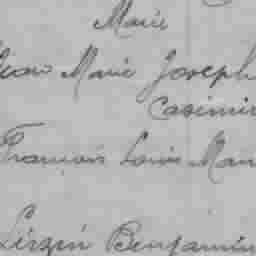 Marie
Jean Marie Joseph
Casimir
François Louis Marie
Benjamin